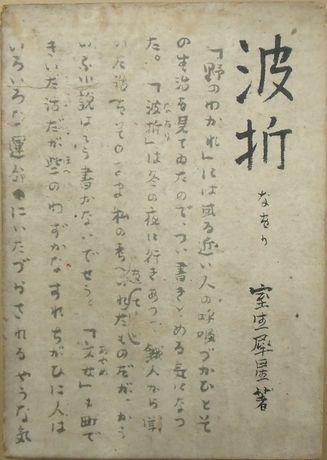 波折
なをり
室生犀星著
「野のわかれ」には或る近い人の呼吸づかひとそ
の生活を見てゐたので、つい書きとめる気になつ
た。「波折」は冬の夜に行きあつ 鉄人から聞
いた話をそのまま私の考へ いれたものだが、かう
いふ小説はもう書かないでせう。「文女」も町で
あやめ
きいた話だが些のわずかなすれちがひに人は
いろいろな運命にいたづらされるやうな気